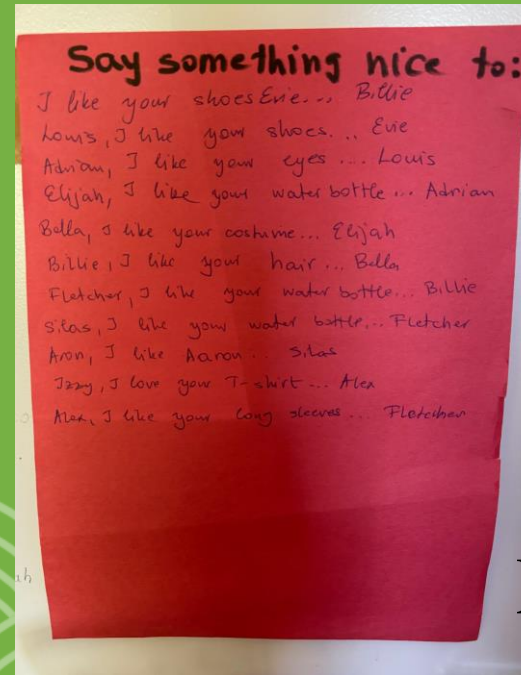 Say something nice to:
I like your shoes Evie... Billie
Louis, I like your shoes... Evie
Adrian, I like your eyes .... Louis
Elijah, I like your water bottle ... Adrian
Bella, I like your costume... Elijah
Billie, I like your hair... Bella
Fletcher, I like your water bottle... Billie
Silas, I like your water bottle... Fletcher
Aron, I like Aaron... Silas
Izzy, I love your T-shirt... Alex
Alex, I like your long sleeves .... Fletcher